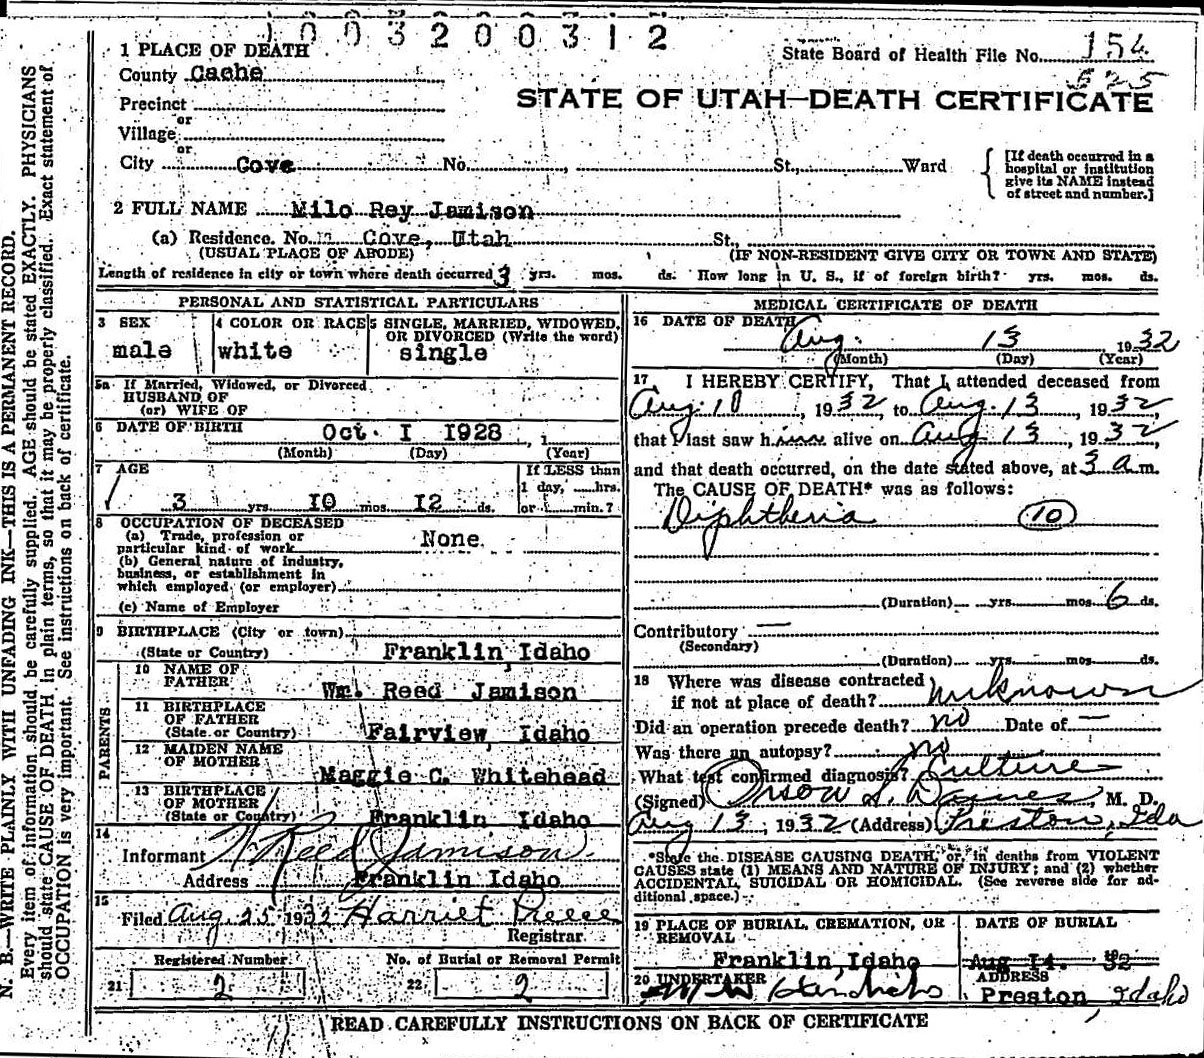 1 0 0 3 2 0 0 3 1 2
State Board of Health File No. 154
525
STATE OF UTAH—DEATH CERTIFICATE
1 PLACE OF DEATH
County Cache
Precinct
or
Village
or
City Cove No. , St., Ward
[If death occurred in a
hospital or institution
give its NAME instead
of street and number.]
2 FULL NAME Milo Rey Jamison
(a) Residence. No. Cove, Utah St.,
(USUAL PLACE OF ABODE) (IF NON-RESIDENT GIVE CITY OR TOWN AND STATE)
Length of residence in city or town where death occurred 3 yrs. mos. ds. How long in U. S., if of foreign birth? yrs. mos. ds.
PERSONAL AND STATISTICAL PARTICULARS
3 SEX
male
4 COLOR OR RACE
white
5 SINGLE, MARRIED, WIDOWED,
OR DIVORCED (Write the word)
single
5a If Married, Widowed, or Divorced
HUSBAND OF
(or) WIFE OF
6 DATE OF BIRTH Oct. I I928
(Month) (Day) (Year)
7 AGE
3 yrs. I0 mos. I2 ds.
If LESS than
1 day, hrs.
or min.?
8 OCCUPATION OF DECEASED
(a) Trade, profession or
particular kind of work None
(b) General nature of industry,
business, or establishment in
which employed (or employer)
(c) Name of Employer
9 BIRTHPLACE (City or town)
(State or Country) Franklin Idaho
PARENTS
10 NAME OF
FATHER Wm. Reed Jamison
11 BIRTHPLACE
OF FATHER
(State or Country) Fairview, Idaho
12 MAIDEN NAME
OF MOTHER Maggie C. Whitehead
13 BIRTHPLACE
OF MOTHER
(State or Country) Franklin Idaho
14
Informant W Reed Jamison
Address Franklin Idaho
15
Filed Aug. 25 1932 Harriet Preece
Registrar.
Registered Number
21 2
No. of Burial or Removal Permit
22 2
MEDICAL CERTIFICATE OF DEATH
16 DATE OF DEATH
Aug. 13 1932
(Month) (Day) (Year)
17 I HEREBY CERTIFY, That I attended deceased from
Aug. 10, 1932, to Aug. 13, 1932,
that I last saw him alive on Aug 13, 1932
and that death occurred, on the date stated above, at 3 a.m.
The CAUSE OF DEATH* was as follows:
Diphtheria 10
(Duration) yrs. mos. 6 ds.
Contributory —
(Secondary)
(Duration) yrs. mos. ds.
18 Where was disease contracted
if not at place of death? unknown
Did an operation precede death? no Date of —
Was there an autopsy? no
What test confirmed diagnosis? Culture
(Signed) Orson S. Daines, M. D.
Aug 13, 1932 (Address) Preston, Ida
*State the DISEASE CAUSING DEATH, or, in deaths from VIOLENT
CAUSES state (1) MEANS AND NATURE OF INJURY; and (2) whether
ACCIDENTAL, SUICIDAL OR HOMICIDAL. (See reverse side for ad-
ditional space.)
19 PLACE OF BURIAL, CREMATION, OR
REMOVAL
Franklin, Idaho
DATE OF BURIAL
Aug I4. 32
20 UNDERTAKER
Hendricks
ADDRESS
Preston, Idaho
READ CAREFULLY INSTRUCTIONS ON BACK OF CERTIFICATE
N. B.—WRITE PLAINLY WITH UNFADING INK—THIS IS A PERMANENT RECORD.
Every item of information should be carefully supplied. AGE should be stated EXACTLY. PHYSICIANS
should state CAUSE OF DEATH in plain terms, so that it may be properly classified. Exact statement of
OCCUPATION is very important. See instructions on back of certificate.